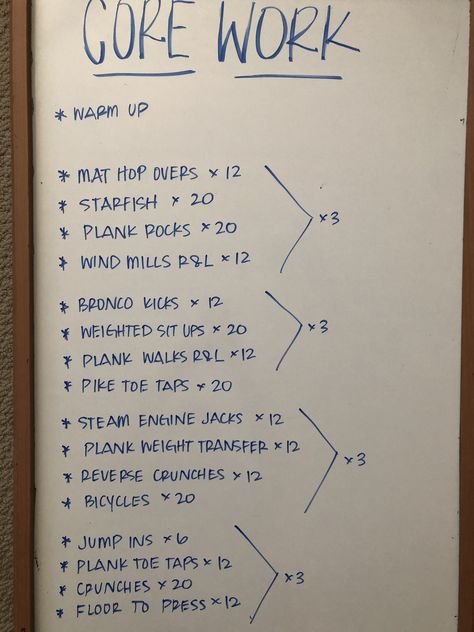 CORE WORK
* WARM UP
* MAT HOP OVERS x 12
* STARFISH x 20
* PLANK ROCKS x 20 x3
* WIND MILLS R&L x 12
* BRONCO KICKS x 12
* WEIGHTED SIT UPS x 20 x3
* PLANK WALKS R&L x 12
* PIKE TOE TAPS x 20
* STEAM ENGINE JACKS x 12
* PLANK WEIGHT TRANSFER x 12
* REVERSE CRUNCHES x 12 x3
* BICYCLES x 20
* JUMP INS x 6
* PLANK TOE TAPS x 12
* CRUNCHES x 20 x3
* FLOOR TO PRESS x 12